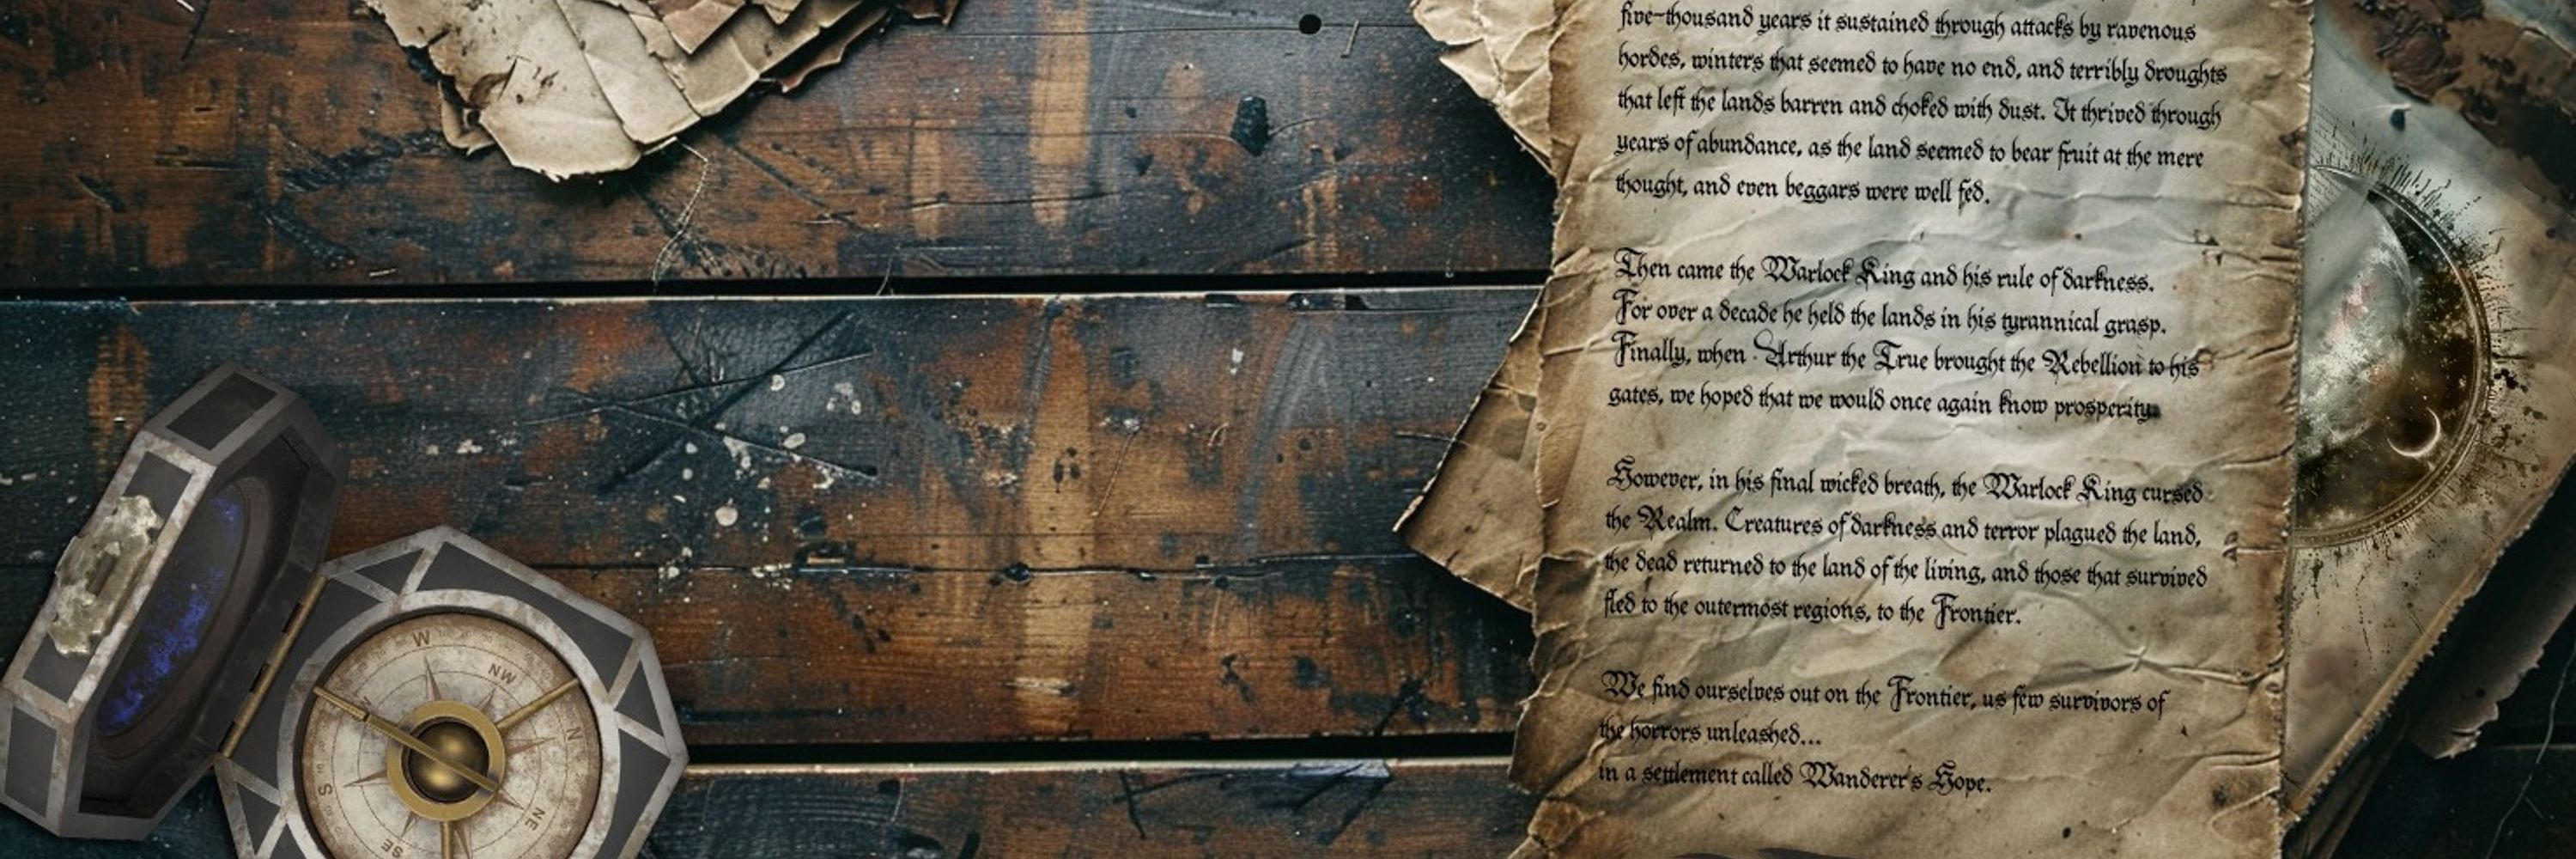 five-thousand years it sustained through attacks by ravenous
hordes, winters that seemed to have no end, and terribly droughts
that left the lands barren and choked with dust. It thrived through
years of abundance, as the land seemed to bear fruit at the mere
thought, and even beggars were well fed.
Then came the Warlock King and his rule of darkness.
For over a decade he held the lands in his tyrannical grasp.
Finally, when Arthur the True brought the Rebellion to his
gates, we hoped that we would once again know prosperity.
However, in his final wicked breath, the Warlock King cursed
the Realm. Creatures of darkness and terror plagued the land,
the dead returned to the land of the living, and those that survived
fled to the outermost regions, to the Frontier.
We find ourselves out on the Frontier, us few survivors of
the horrors unleashed...
in a settlement called Wanderer's Hope.
W
NW
N
NE
SE
S